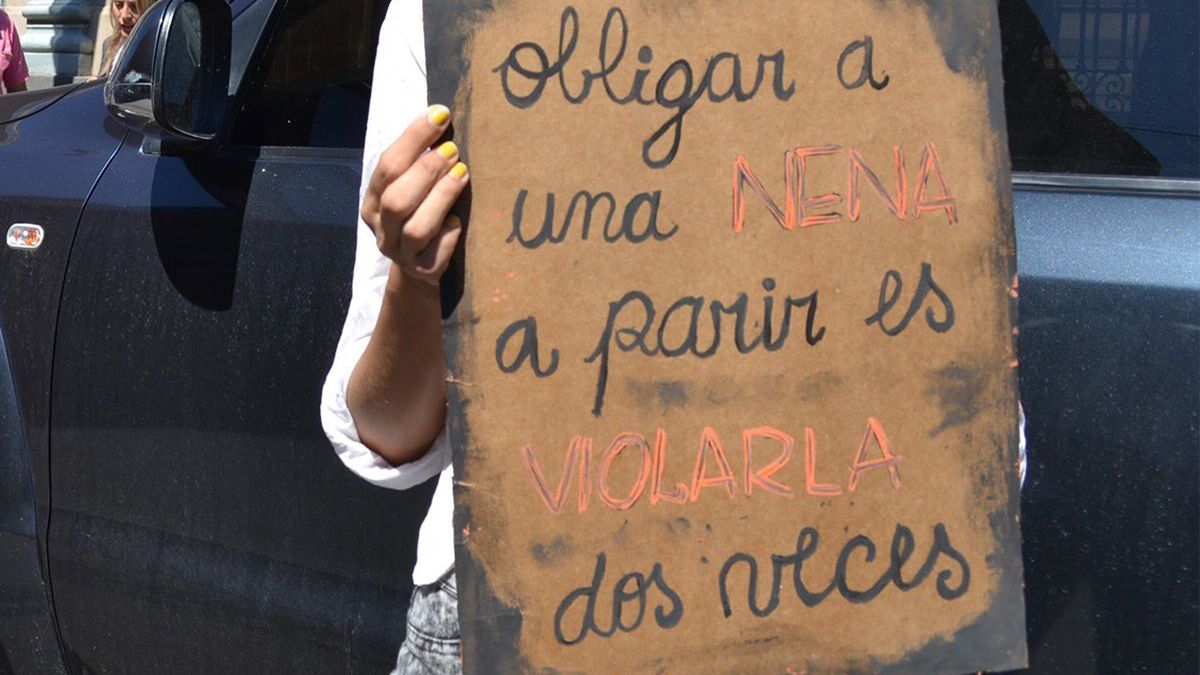 obligar a
una NENA
a parir es
VIOLARLA
dos veces